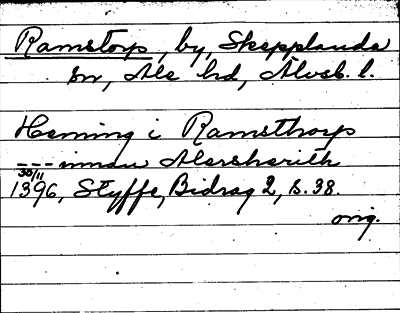 Ramstorp, by, Skepplanda
sn, Ale hd, Älvsb. l.
Heming i Ramsthorp
--- innan Alarshærith
30/11
1396, Styffe, Bidrag 2, s. 38.
orig.